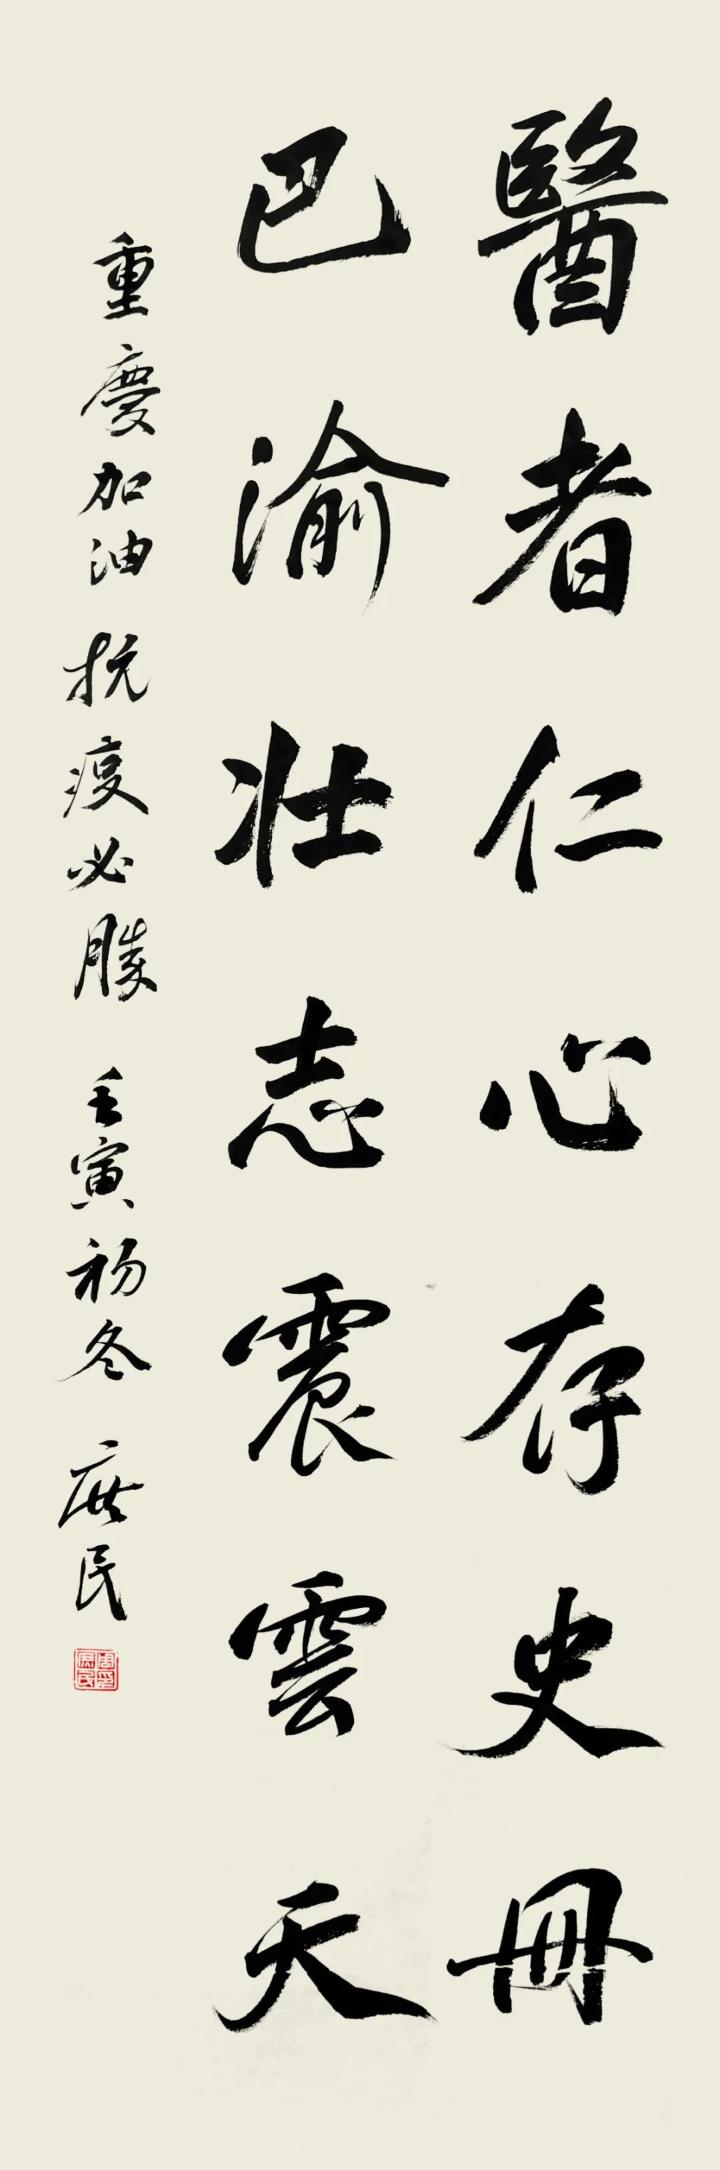 醫者仁心存史冊
巴渝壯志震雲天
重慶加油 抗疫必勝 壬寅初冬 庶民